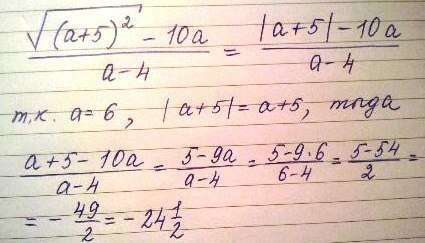 (√((a+5)²) - 10a)/(a-4) = (|a+5| - 10a)/(a-4)
т.к. a = 6, |a+5| = a+5, тогда
(a+5-10a)/(a-4) = (5-9a)/(a-4) = (5-9·6)/(6-4) = (5-54)/2 =
= - 49/2 = - 24 1/2